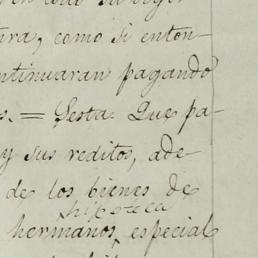 ura, como si enton-
ntinuaran pagando
s. = Sesta. Que pa-
y sus reditos, ade
de los bienes de
hipoteca
hermanos, especial